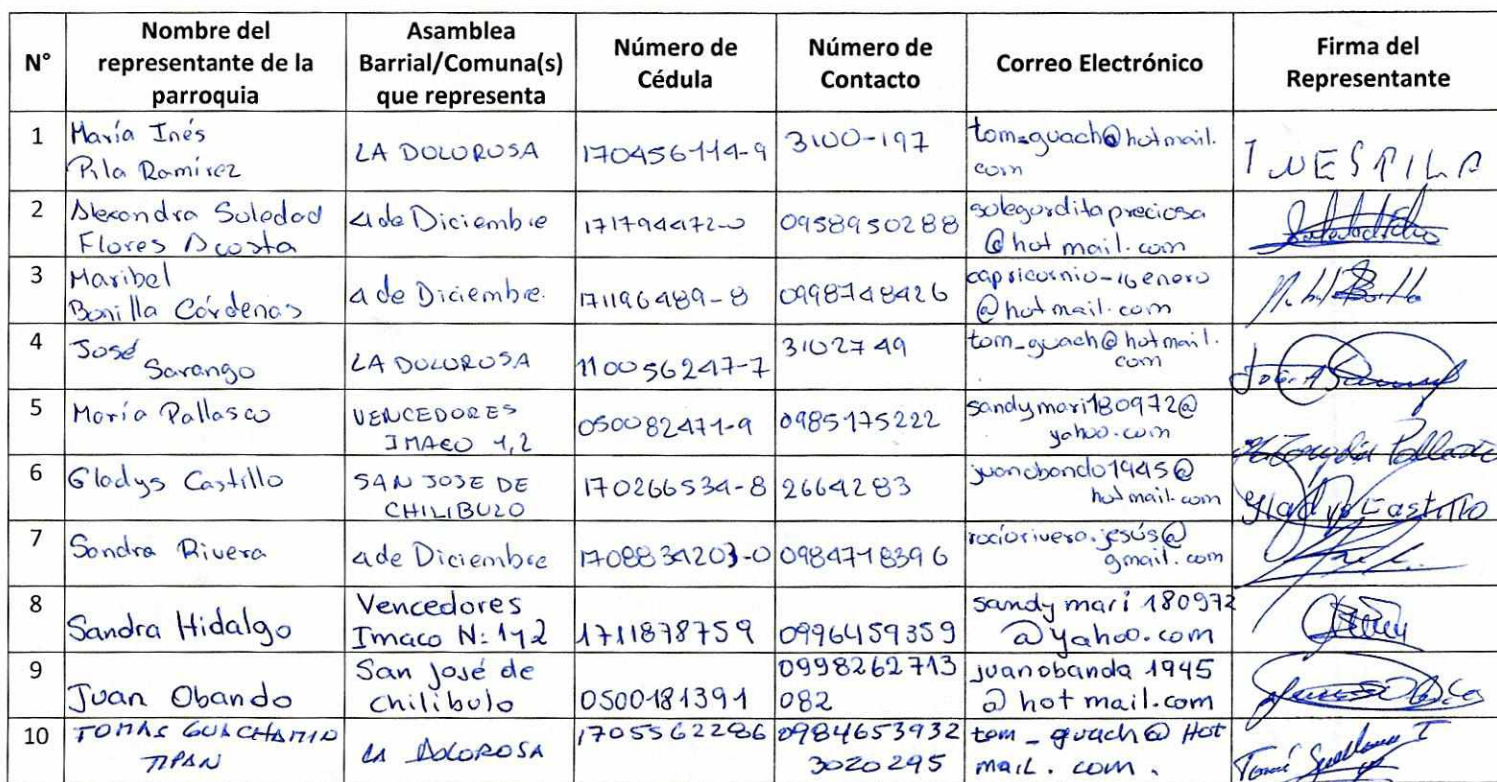 N° | Nombre del representante de la parroquia | Asamblea Barrial/Comuna(s) que representa | Número de Cédula | Número de Contacto | Correo Electrónico | Firma del Representante
1 | María Inés Pila Ramírez | LA DOLOROSA | 170456114-9 | 3100-197 | tom_guach@hotmail.com | INES PILA
2 | Alexandra Soledad Flores Acosta | 4 de Diciembre | 171794472-0 | 0958950288 | solegorditapreciosa@hotmail.com |
3 | Maribel Bonilla Cárdenas | 4 de Diciembre. | 171196489-8 | 0998748426 | capricornio-16enero@hotmail.com |
4 | José Sarango | LA DOLOROSA | 110056247-7 | 3102749 | tom_guach@hotmail.com |
5 | María Pallasco | VENCEDORES IMACO 1,2 | 050082471-9 | 0985175222 | sandymari180972@yahoo.com | Pallasco
6 | Gladys Castillo | SAN JOSE DE CHILIBULO | 170266534-8 | 2664283 | juanobando1945@hotmail.com | Gladys Castillo
7 | Sandra Rivera | 4 de Diciembre | 1708834203-0 | 0984718396 | rociorivera.jesús@gmail.com |
8 | Sandra Hidalgo | Vencedores Imaco N: 1y2 | 1711878759 | 0996459359 | sandy mari 180972 @yahoo.com |
9 | Juan Obando | San José de Chilibulo | 0500181391 | 0998262713 082 | juanobanda 1945 @hotmail.com |
10 | TOMAS GUACHAMIN TIPAN | LA DOLOROSA | 1705562286 | 0984653932 3020295 | tom_guach@Hotmail.com. | Tomás